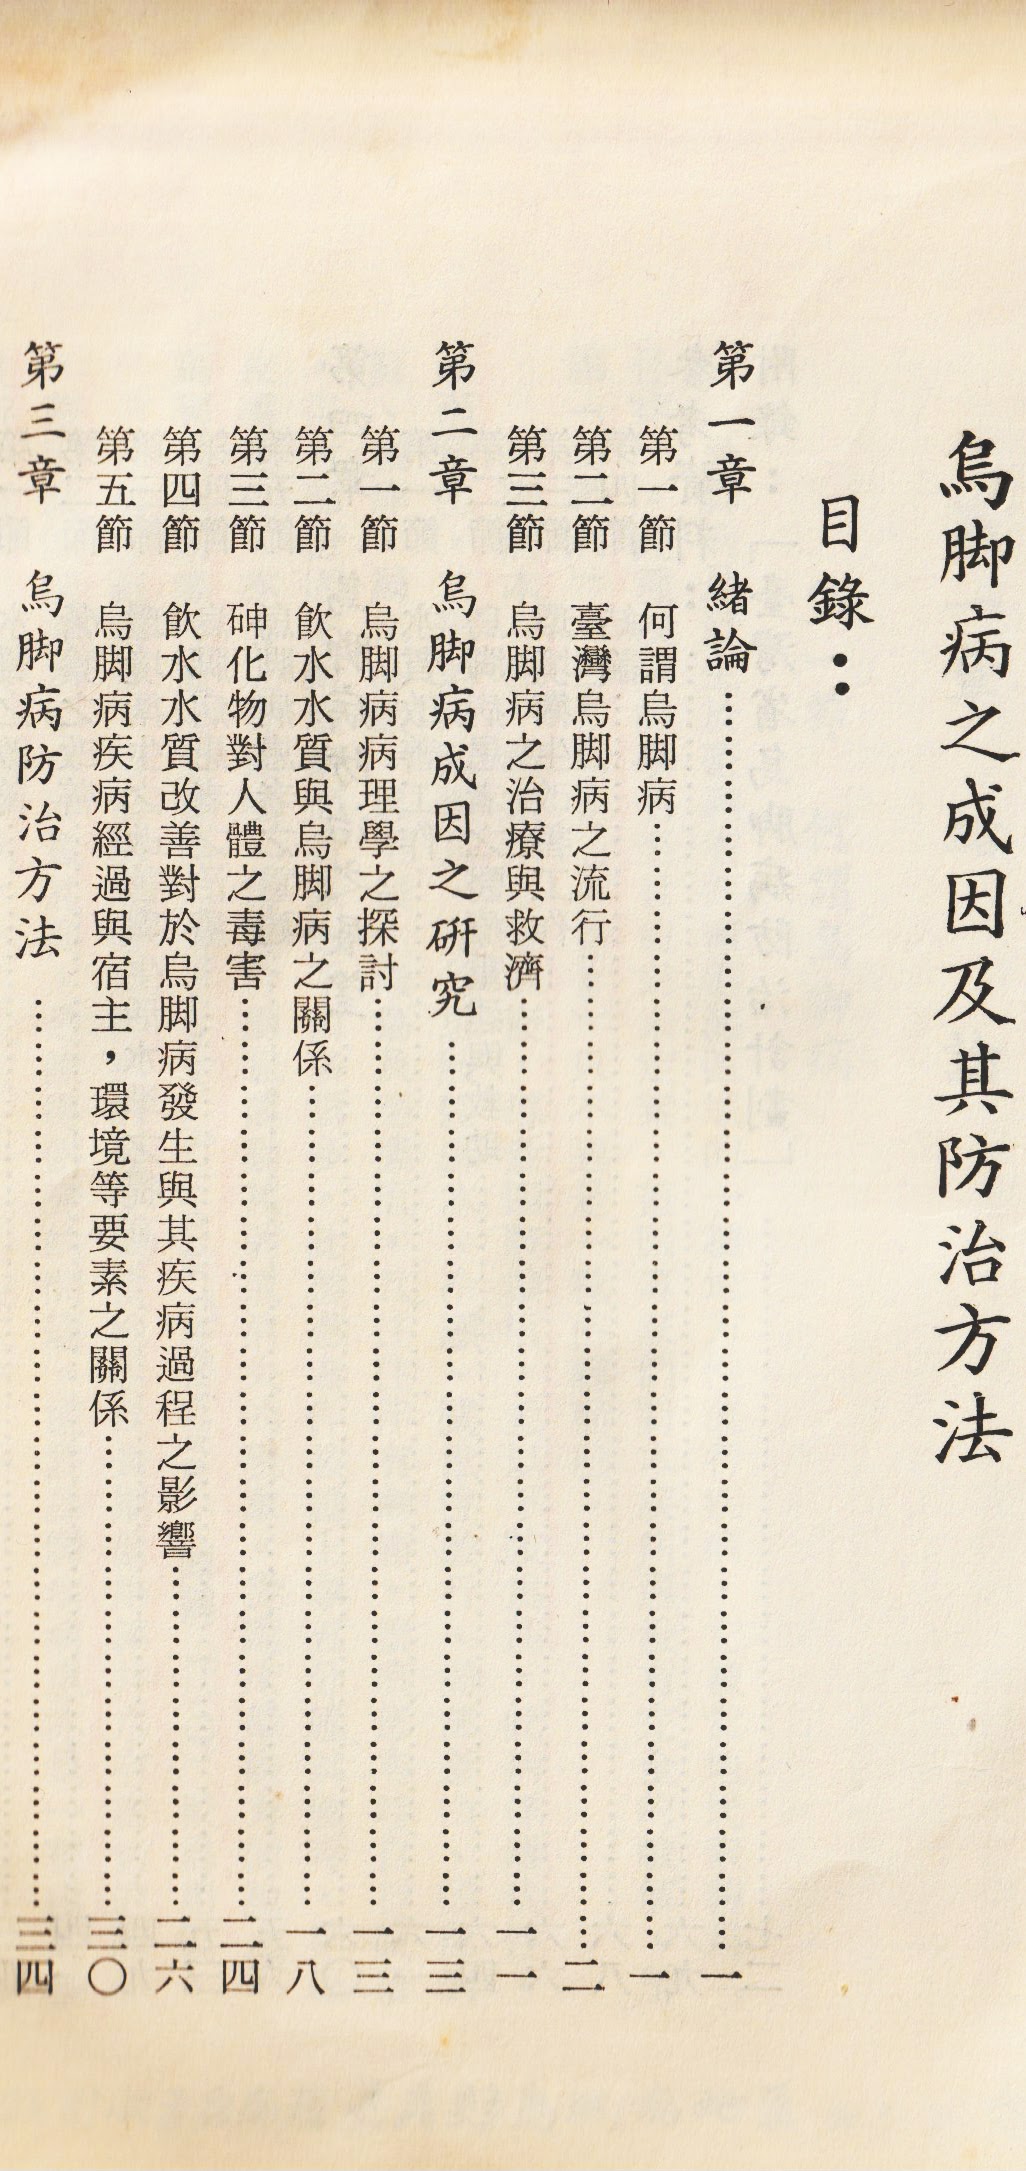 烏脚病之成因及其防治方法
目錄：
第一章　緒論……………………一
第一節　何謂烏脚病……………………一
第二節　臺灣烏脚病之流行……………………二
第三節　烏脚病之治療與救濟……………………一一
第二章　烏脚病成因之研究……………………一三
第一節　烏脚病病理學之探討……………………一三
第二節　飲水水質與烏脚病之關係……………………一八
第三節　砷化物對人體之毒害……………………二四
第四節　飲水水質改善對於烏脚病發生與其疾病過程之影響……………………二六
第五節　烏脚病疾病經過與宿主，環境等要素之關係……………………三〇
第三章　烏脚病防治方法……………………三四